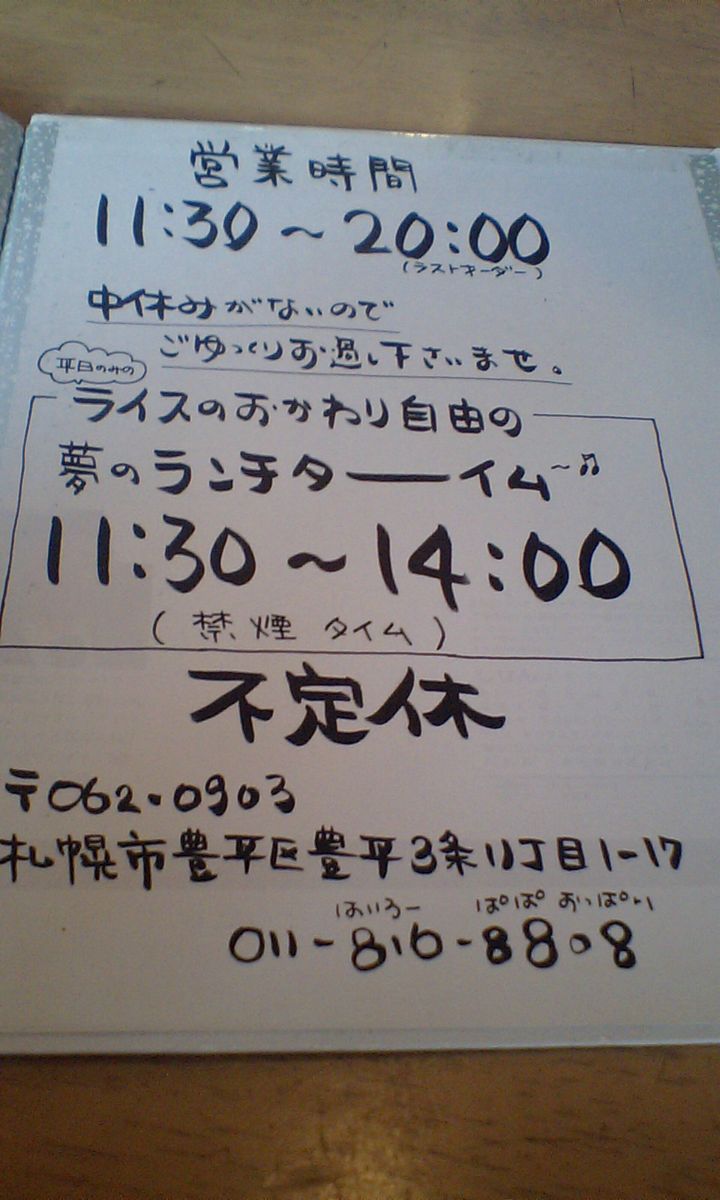 営業時間
11:30～20:00
(ラストオーダー)
中休みがないので
ごゆっくりお過し下さいませ。
平日のみの
ライスのおかわり自由の
夢のランチターーイム～♫
11:30～14:00
(禁煙タイム)
不定休
〒062-0903
札幌市豊平区豊平3条11丁目1-17
はいろー ぱぱ おっぱい
011-816-8808